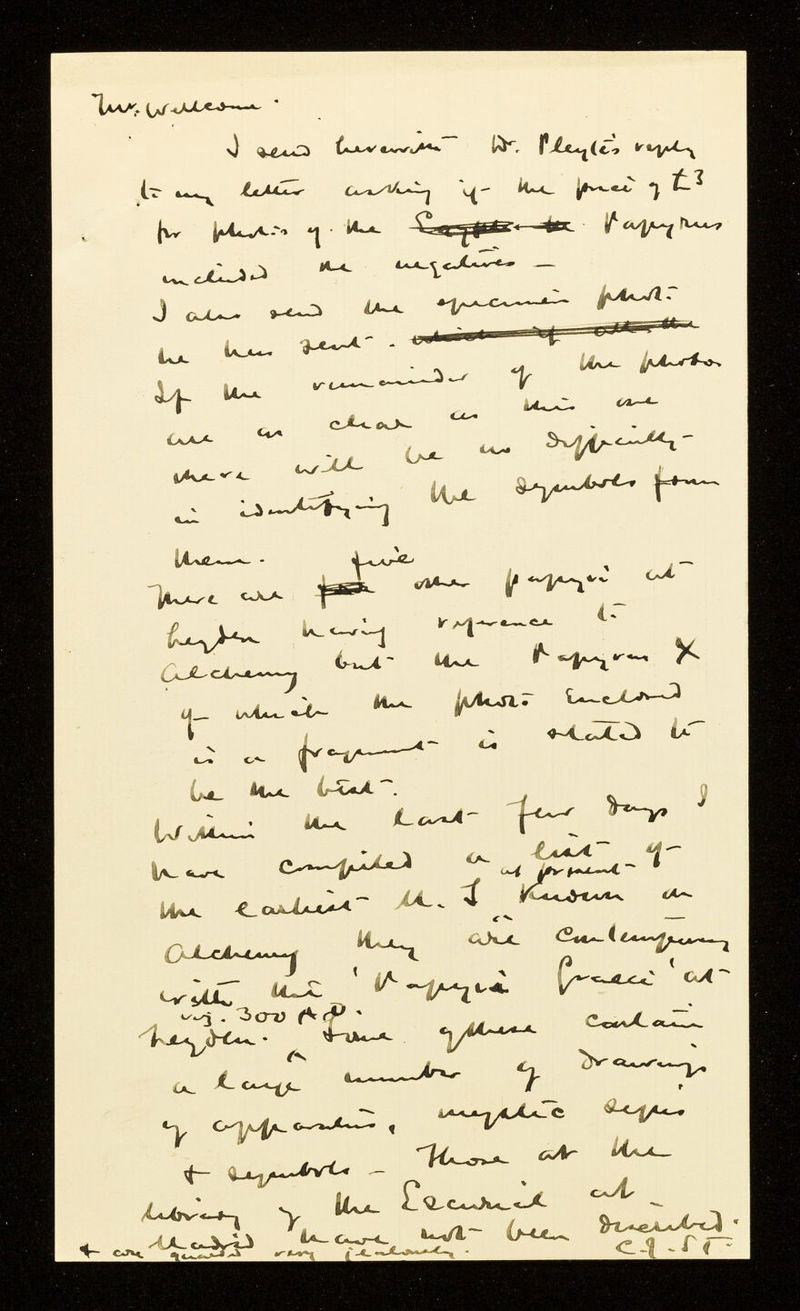 Mr. Wellcome.
I send herewith Dr. Pleyte's reply
to my letter asking if the price of £3
for photos of the Papyrus
included the negatives —
I also send the specimen photo
he has sent. which if all the
If the remainder of the photos
are as clear as this one
there will be no difficulty
in identifying the symbols from
them.
five
There are other papyri at
Leyden having reference to
Alchemy but the Papyrus X
of which the photo enclosed
is a fragment is stated to
be the best.
Within the last few days I
have compiled a list of
at present
the earliest M.S. known on
Alchemy they are contemporary
with the 'Papyri Graeci' at
viz. 300 A.D.
Leyden. Some of these contain
a large number of drawings
of apparatus, mystic signs
+ symbols — Those at the
library of the Escurial at
Madrid have not been described.
+ are guarded very jealously.
C.J.S.T.